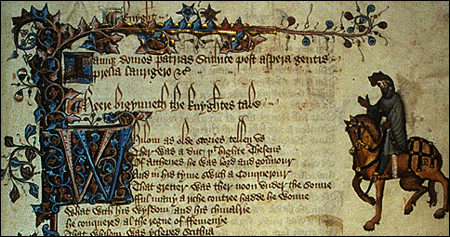 Knyght
Iamque domos patrias Scithice post aspera gentis
Prelia laurigero &c
Heere bigynneth the knyghtes tale
Whilom as olde stories tellen us
Ther was a duc þt highte Theseus
Of Atthenes he was lord and gouernour
And in his tyme swich a Conquerour
That gretter was ther noon under the sonne
fful many a riche contree hadde he wonne
What with his wysdom and his chiualrie
He conquered al the regne of ffemenye
That whilom was ycleped Scithia